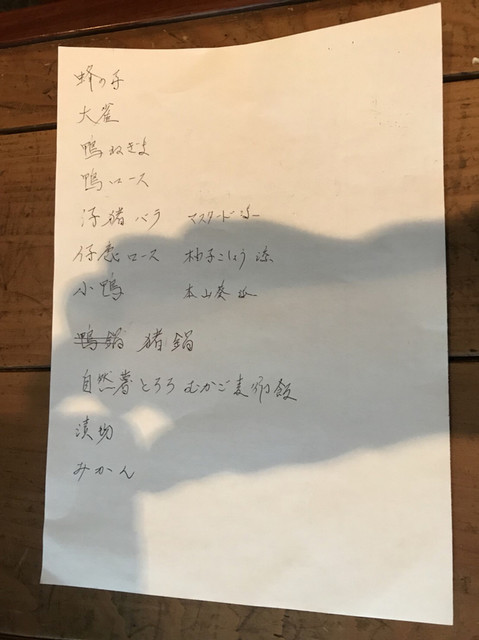 蜂の子
大雀
鴨ねぎま
鴨ロース
仔猪バラ マスタード
仔鹿ロース 柚子こしょう
小鴨 本山葵
鴨鍋 猪鍋
自然薯とろろ むかご麦卵飯
漬物
みかん